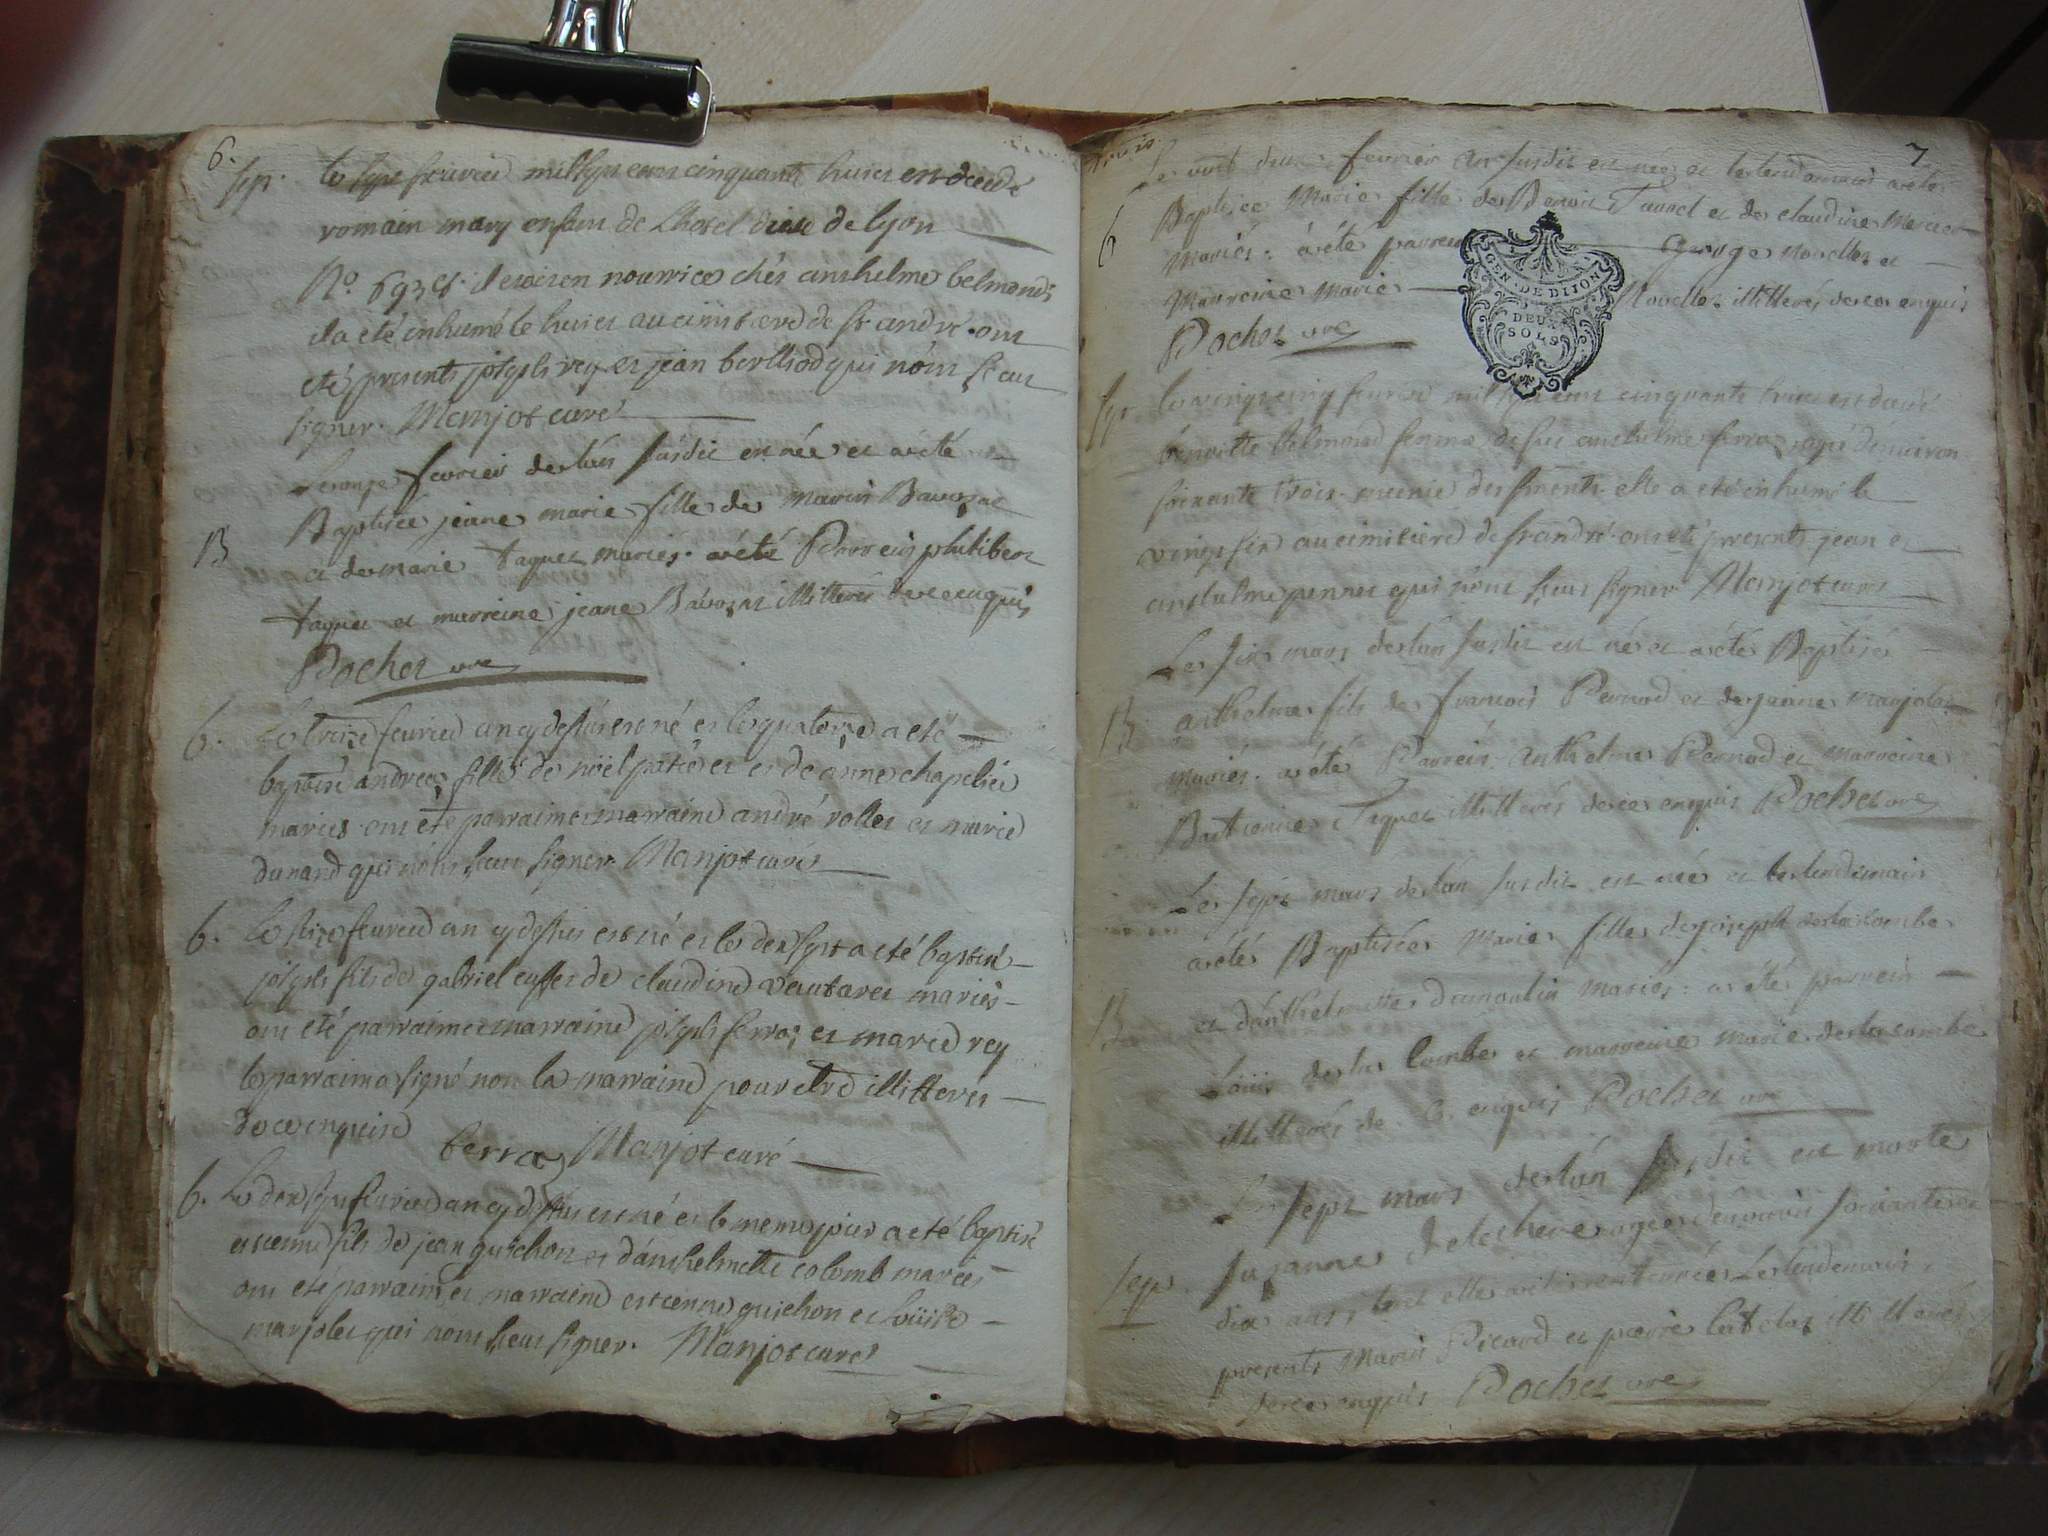 6.
sep. le sept feuvrier mil sept cens cinquante huict est decedé
romain mary enfan de Lhotel dieu de lyon
il etoit en nourrice chés anthelme belmond
il a eté inhumé le huict au cimitiere de st andré. ont
eté presents joseph rey et jean berthod qui nont sceu
signer. Manjot curé
Le onze fevrier de l'an susdit est née et a eté
B Baptisée jeane marie fille de Marin Bavozat
et de marie taquet mariés. a eté Parrein philibert
taquet et marreine jeane Bavozat illitterés de ce enquis
Pochet vre
b. Le treize feuvrier an cy dessus est né et le quatorze a eté
baptisé andrée fille de noël patié et de anne chapelier
mariés ont eté parrain et marraine andré rollet et marie
dunand qui nont sceu signer. Manjot curé
b. Le seize feuvrier an cy dessus est né et le dex sept a eté baptisé
joseph fils de gabriel et de claudine mariés
ont eté parrain et marraine joseph ferra et marie rey
le parrain a signé non la marraine pour etre illitterés
de ce enquise
ferra Manjot curé
b. Le dex sept feuvrier an cy dessus est né et le meme jour a eté baptisé
estienne fils de jean guichon et d'anthelmette colomb mariés
ont eté parrain et marraine estienne guichon et loüise
marjolet qui nont sceu signer. Manjot curé
7
Le vint deux fevrier an susdit est née et le lendemain a eté
b Baptisée Marie fille de Benoit et de claudine Mercier
Mariés: a eté parrein George Novellet et
Marreine Marie Novellet illitterés de ce enquis
GEN. DE DIJON
DEUX
SOLS
Pochet vre
sep. le vingt cinq feuvrier mil sept cens cinquante huict est decedé
benoitte belmond femme de feu anthelme ferra agé d'environ
soixante trois munie des sacrements elle a eté inhumé le
vingt six au cimitiere de st andré. ont eté presents jean et
anthelme pernet qui nont sceu signer Manjot curé
Le six mars de l'an susdit est né et a eté Baptisé
B anthelme fils de francois Pernod et de jeanne marjolet
Mariés. a eté Parrein anthelme Pernod et marreine
Taquet illitterés de ce enquis Pochet vre
Le sept mars de l'an susdit est née et le lendemain
a eté Baptisée Marie fille de joseph de la combe
B et d'anthelmette dumoulin Mariés: a eté parrein
Loüis de la Combe et marreine Marie de la combe
illitterés de ce enquis Pochet vre
Le sept mars de l'an susdit est morte
sep. Suzanne agée d'environ soixante et
dix ans et elle a eté enterrée Le lendemain
presents Marin Picard et pierre illitterés
de ce enquis Pochet vre